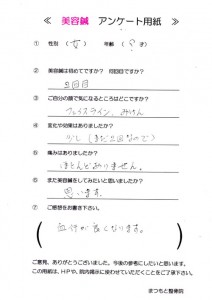 ≪ 美容鍼 アンケート用紙 ≫
① 性別 (女) 年齢 ( 才)
② 美容鍼は初めてですか? 何回目ですか?
2回目
③ ご自分の顔で気になるところはどこですか?
フェイスライン、みけん
④ 変化や効果はありましたか?
少し(まだ2回なので)
⑤ 痛みはありましたか?
ほとんどありません。
⑥ また美容鍼をしてみたいと思いましたか?
思います。
⑦ ご感想をお書き下さい。
(血行が良くなります。)
ご意見、ありがとうございました。今後の参考にしたいと思います。
この用紙は、HPや、院内掲示に使わせていただくことをご了承下さい。
まつもと整骨院